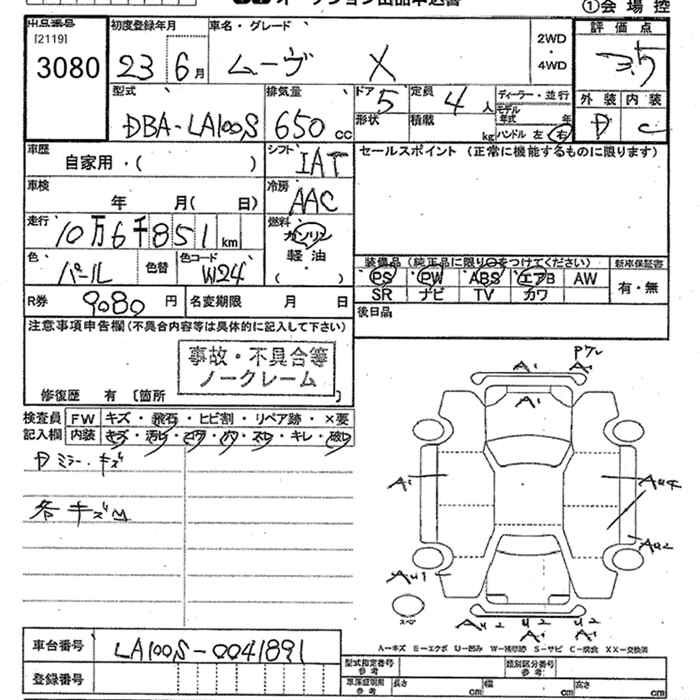 ①会場控
出品番号 初度登録年月 車名・グレード 2WD・4WD 評価点
[2119]
3080 23 6月 ムーヴ X 3.5
型式 排気量 ドア 5 定員 4人 ディーラー・並行 外装 内装
DBA-LA100S 650cc 形状 積載 kg モデル年式 年 D C
ハンドル 左 右
車歴 自家用・( ) シフト IAT セールスポイント (正常に機能するものに限ります)
車検 年 月( 日) 冷房 AAC
走行 10万6千851km 燃料 ガソリン
軽油
( )
色 パール 色替 色コード W24 装備品 (純正品に限り○をつけてください) 新車保証書
PS PW ABS エアB AW 有・無
R券 9080円 名変期限 月 日 SR ナビ TV カワ
後日品
注意事項申告欄(不具合内容等は具体的に記入して下さい)
事故・不具合等
ノークレーム
修復歴 有 [箇所 ]
検査員 FW キズ・飛石・ヒビ割・リペア跡・×要
記入欄 内装 キズ・汚れ・コゲ・穴・スレ・キレ・破れ
Dミラー・キズ
各キズM
A1 A1
A1
A1
AU1
AU2 U2 U2
A1 A1
スペア
A-キズ E-エクボ U-凹み W-補修跡 S-サビ C-腐食 XX-交換済
車台番号 LA100S-0041891
登録番号
型式指定番号 類別区分番号
参考 参考
車庫証明用 長さ cm 幅 cm 高さ cm
参考